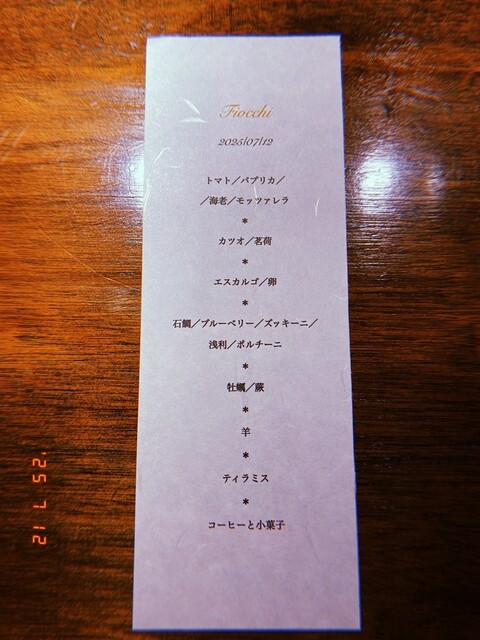 Fiocchi
2025/07/12
トマト／パプリカ／
／海老／モッツァレラ
*
カツオ／茗荷
*
エスカルゴ／卵
*
石鯛／ブルーベリー／ズッキーニ／
浅利／ポルチーニ
*
牡蠣／蕨
*
羊
*
ティラミス
*
コーヒーと小菓子
'25 7 12